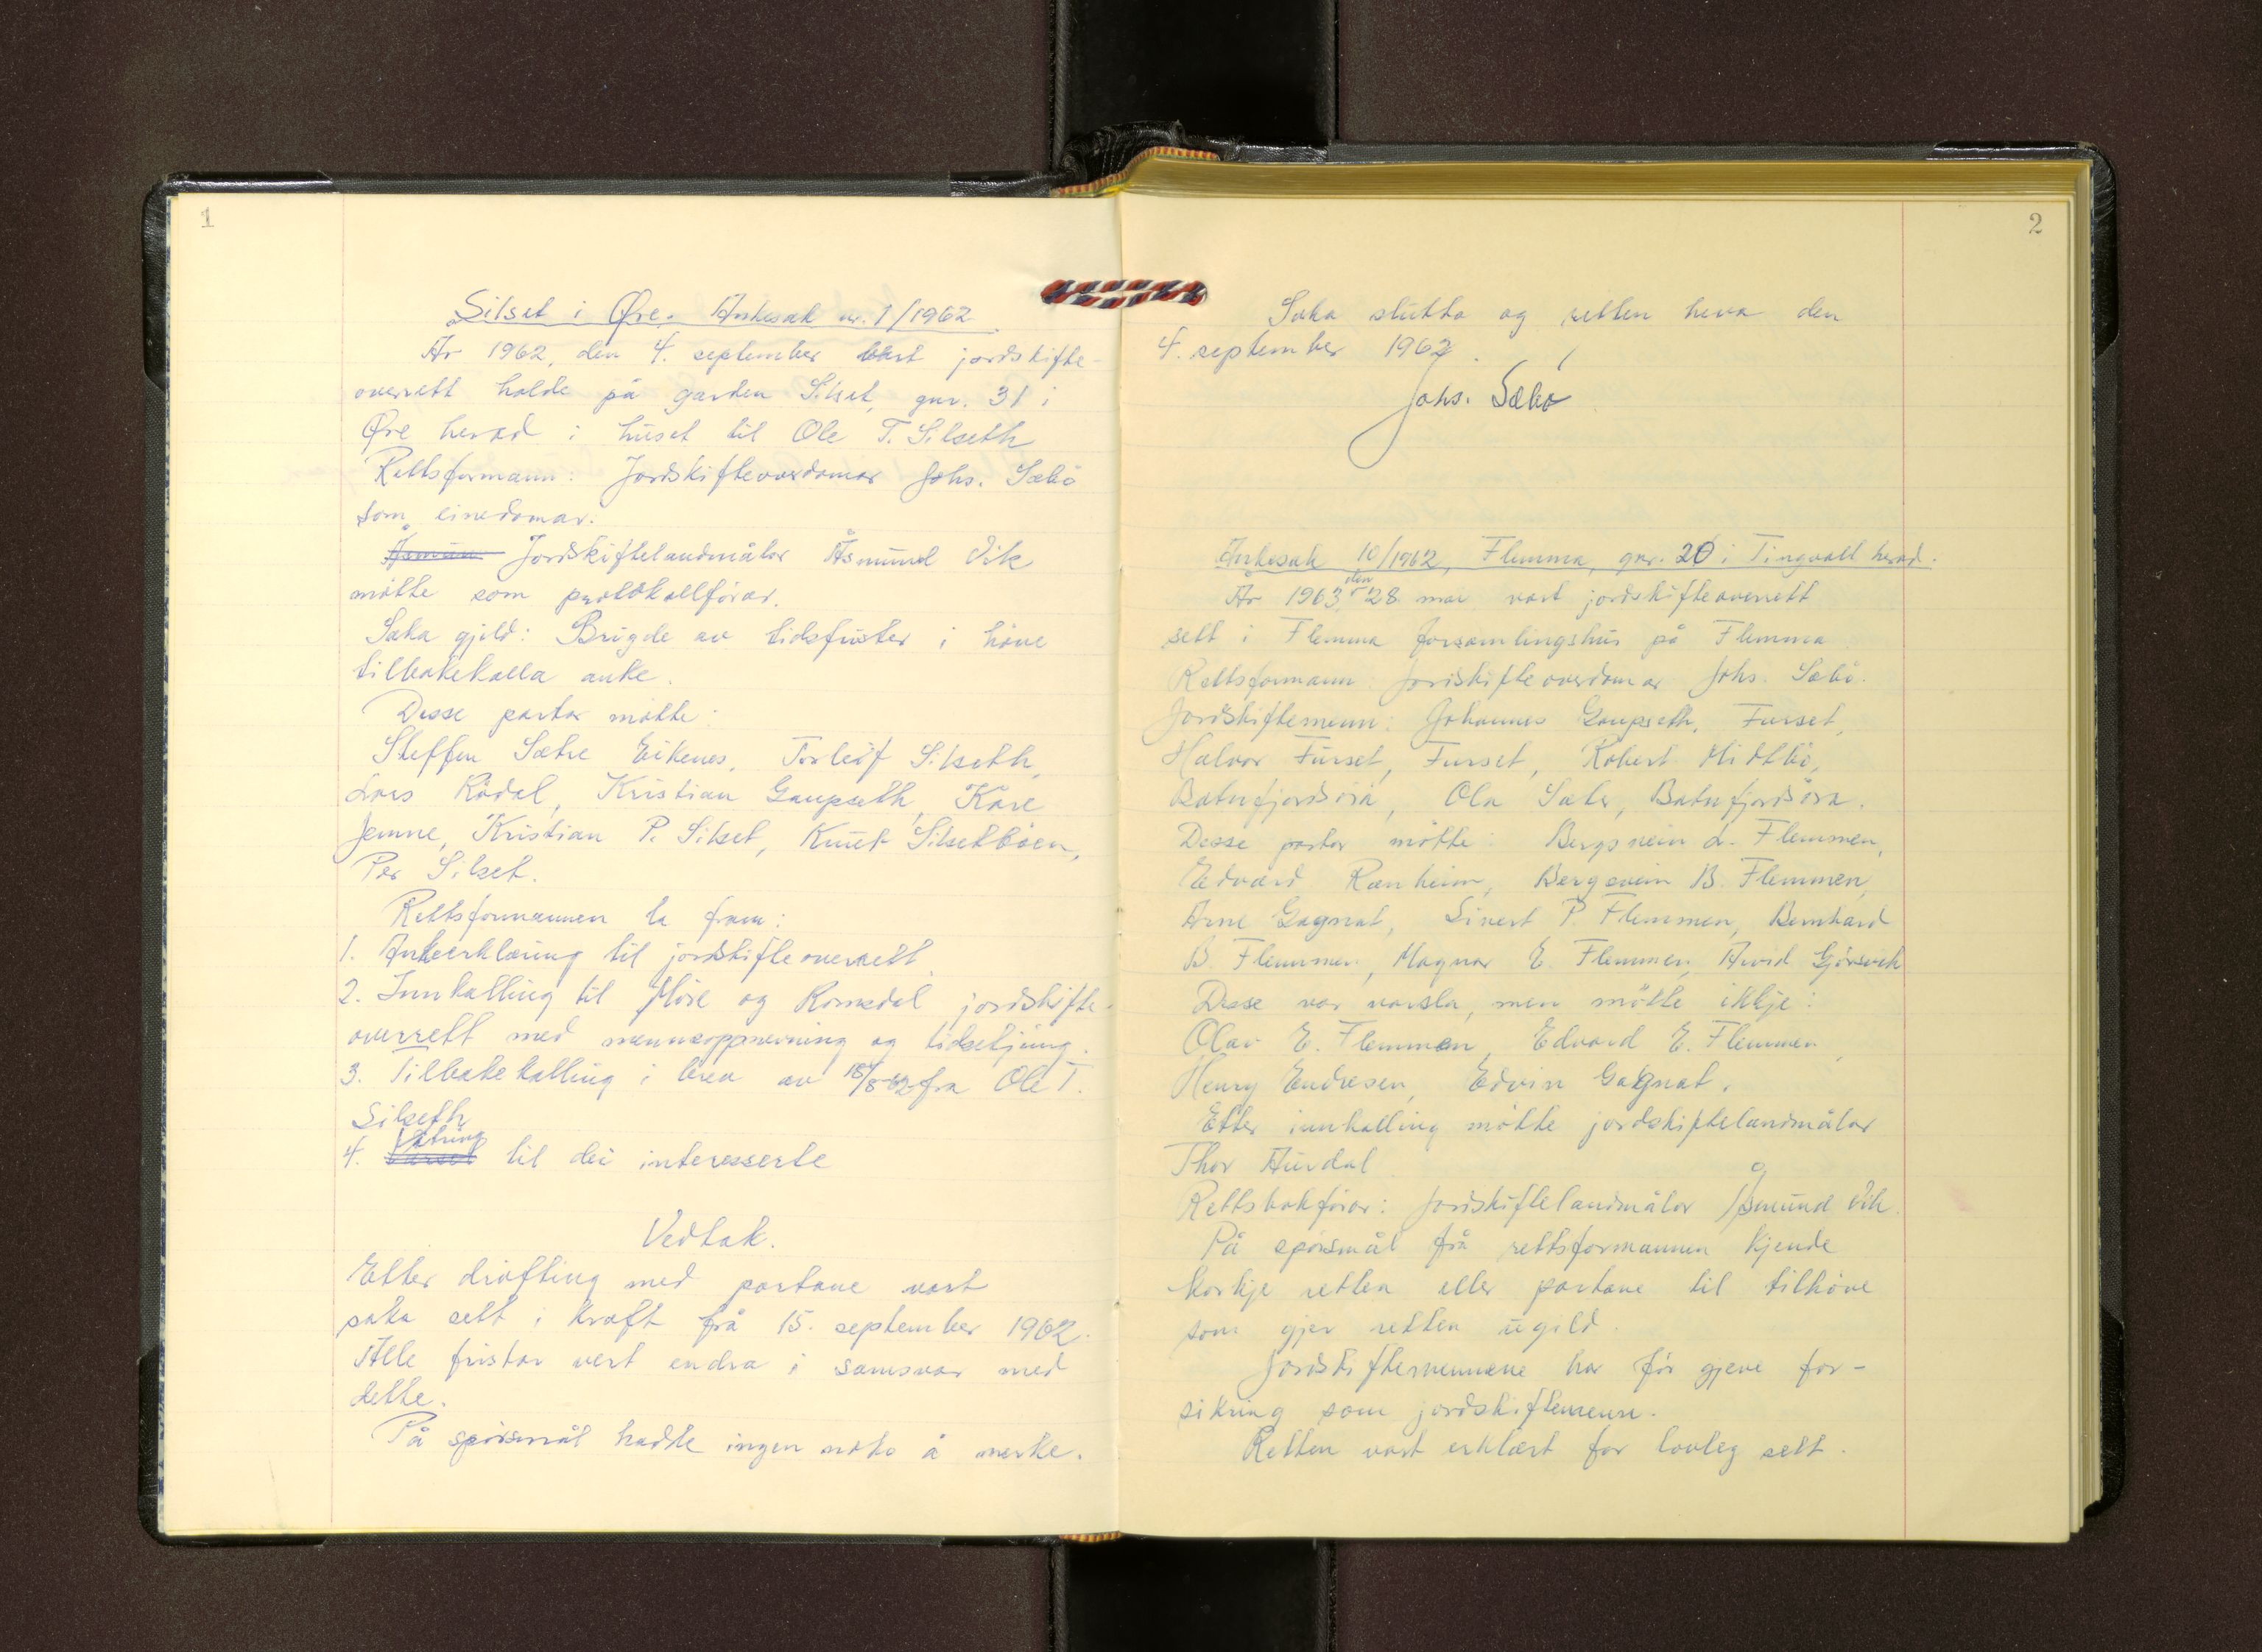 1
Silset i Øre. Ankesak nr. 1/1962
År 1962, den 4. september vart jordskifte-
overrett halde på garden Silset, gnr. 31 i
Øre herad i huset til Ole T. Silseth
Rettsformann: Jordskifteoverdomar Johs. Sæbö
som einedomar.
Åsmun Jordskiftelandmålar Åsmund Vik
mötte som protokollförar.
Saka gjeld: Brigde av tidsfrister i höve
tilbakekalla anke.
Desse partar mötte:
Steffen Sætre Eikenes, Torleif Silseth,
Lars Rödal, Kristian Gaupseth, Kåre
Jemne, Kristian P. Silset, Knut Silsetböen,
Per Silset.
Rettsformannen la fram:
1. Ankeerklæring til jordskifteoverrett.
2. Innkalling til Möre og Romsdal jordskifte-
overrett med mennoppnevning og tidsetjing.
3. Tilbakekalling i brev av 18/8-62 fra Ole T.
Silseth
4. Varsel Våtring til dei interesserte
Vedtak.
Etter dröfting med partane vart
saka sett i kraft frå 15. september 1962.
Alle fristar vert endra i samsvar med
dette.
På spörsmål hadde ingen noko å merke.
2
Saka slutta og retten heva den
4. september 1962.
Johs. Sæbö
Ankesak 10/1962, Flemma, gnr. 20 i Tingvoll herad.
År 1963, den 28. mai vart jordskifteoverrett
sett i Flemma forsamlingshus på Flemma
Rettsformann: Jordskifteoverdomar Johs. Sæbö.
Jordskiftemenn: Johannes Gaupseth, Furset,
Halvor Furset, Furset, Robert Midtbö,
Batnfjordsöra, Ola Sæter, Batnfjordsöra.
Desse partar mötte: Bergsvein L. Flemmen,
Edvard Ranheim, Bergsvein B. Flemmen,
Arne Gagnat, Sivert P. Flemmen, Bernhard
B. Flemmen, Magnar E. Flemmen, Arvid Gjörsvik
Desse var varsla, men mötte ikkje:
Olav E. Flemmen, Edvard E. Flemmen,
Henry Endresen, Edvin Gagnat.
Etter innkalling mötte jordskiftelandmålar
Thor Aurdal
Rettsbokförar: Jordskiftelandmålar Åsmund Vik.
På spörsmål frå rettsformannen kjende
korkje retten eller partane til tilhöve
som gjer retten ugild.
Jordskiftemennene har för gjeve for-
sikring som jordskiftemenn.
Retten vart erklært for lovleg sett.